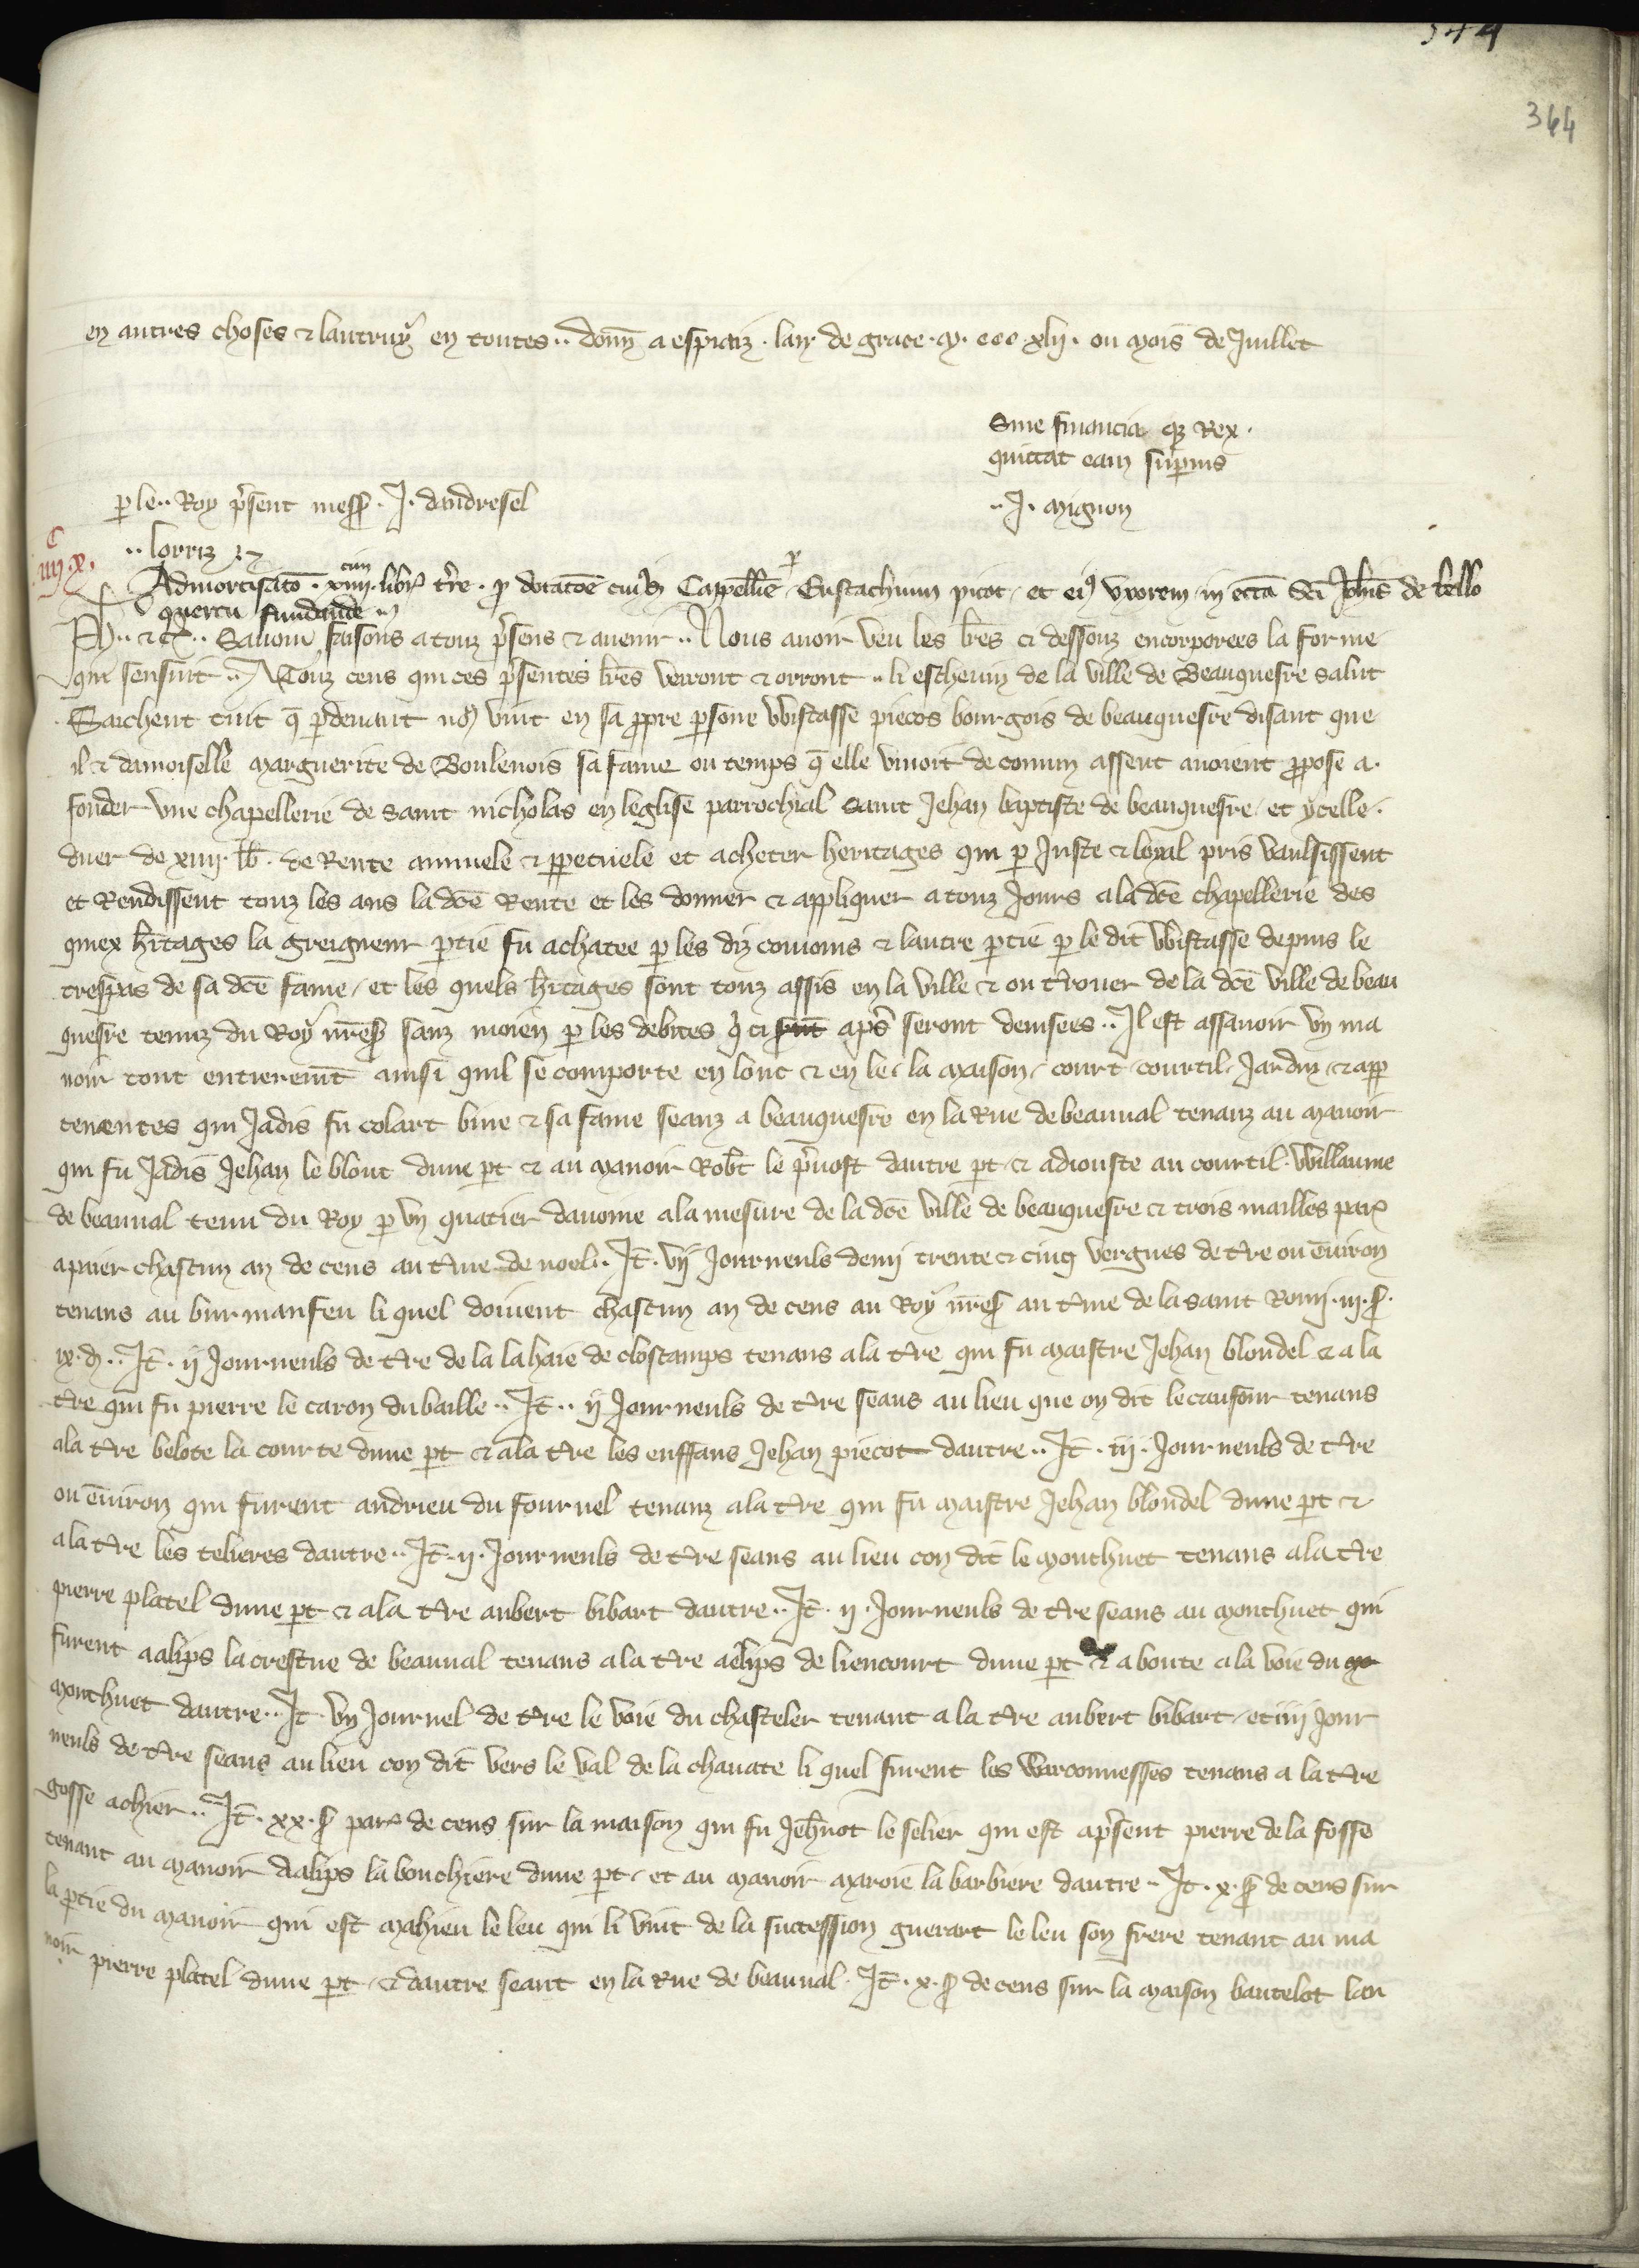 344
364
en autres choses & lautruy en toutes .. donn a espiaiz . lan de grace . M . ccc . xlij . ou mois de Juillet
Sine financia qz Rex .
quittat eam superius
p le .. Roy psent mess . J . dandresel
.. J . Mignon
.. lorriz
C
iiij . x .
Admortisato . xiiij . libr tre . p dotatoe cuiusd Capellie p Eustachium picot et eius uxorem in eccia Sci Johis de bello
quercu fundande ..
Ph .. & c .. Savoir faisons a touz psens & avenir .. Nous avoir veu les lres ci dessouz encorporees la forme
qui sensuit .. A Touz ceus qui ces psentes lres verront & orront .. li eschevin de la ville de Beauquesre salut
Saichent tuit q pdevant no vint en sa ppre psone Wistasse piecos bourgois de beauquesre disant que
il & damoiselle Marguerite de Boulenois sa fame ou temps q elle vivoit de comun assent avoient ppose a .
fonder une chapellerie de saint nicholas en leglise parrochial saint Jehan baptiste de beauquesre et ycelle .
duer de xiiij . lb . de Rente annuele & ppetuele et acheter heritages qui p juste & loyal pris vaulsissent
et Rendissent touz les ans la dce Rente et les donner & appliquer a touz jours a la dce chapellerie des
quex hritages la greigneur ptie fu achatee p les diz conioins & lautre ptie p le dit Wistasse depuis le
trespas de sa dce fame / et les quels hritages sont touz assis en la ville & ou terouer de la dce ville de beau
quesre tenuz du Roy nres sanz moien p les debites q ci sont aps seront devisees .. Il est assavoir un ma
noir tout entieremt ainsi quil se comporte en lonc & en le / la maison / court / courtil / jardin / & app
tenentes qui jadis fu colart bine & sa fame seanz a beauquesre en la Rue de beauval tenanz au manoir
qui fu jadis Jehan le blont dune pt & au manoir Robt le pvost dautre pt / & adjouste au courtil . Willaume
de beauval tenu du Roy p un quatier davoine a la mesure de la dce ville de beauquesre & trois mailles par
apaier chascun an de cens au tme de noel .. It . vij journeuls demi trente & cinq vergues de tre ou environ
tenans au bur manfeu li quel doivent chascun an de cens au Roy nres au tme de la saint Remi . iij . s .
ix . d .. It . ij journeuls de tre de la la haie de clostamps tenans a la tre qui fu maistre Jehan blondel & a la
tre qui fu pierre le caron du baille .. It .. ij journeuls de tre seans au lieu que on dit lecaufour tenans
a la tre belote la courte dune pt & a la tre les enffans Jehan piecot dautre .. It . iij . journeuls de tre
ou environ qui furent andrieu du fournel tenanz a la tre qui fu maistre Jehan blondel dune pt &
a la tre les telieres dautre .. It . ij . journeuls de tre seans au lieu con dit le monthuet tenans a la tre
pierre platel dune pt & a la tre aubert bibart dautre .. It . ij . journeuls de tre seans au monthuet qui
furent aalips la crestue de beauval tenans a la tre aelips de liencourt dune pt & aboute a la voie du mo
monthuet dautre .. It . un journel de tre le voie du chasteler tenant a la tre aubert bibart / et iiij jour
neuls de tre seans au lieu con dit vers le val de la chavate li quel furent les Warconnesses tenans a la tre
gosse achier .. It . xx . s par de cens sur la maison qui fu Jehnot le selier qui est apsent pierre de la fosse
tenant au manoir Aalips la bouchiere dune pt / et au manoir maroie la barbiere dautre .. It . x . s de cens sur
la ptie du manoir qui est mahieu le leu qui li vint de la succession guerart le leu son frere tenant au ma
noir pierre platel dune pt / & dautre seant en la Rue de beauval . It . x . s de cens sur la maison bautelot lau